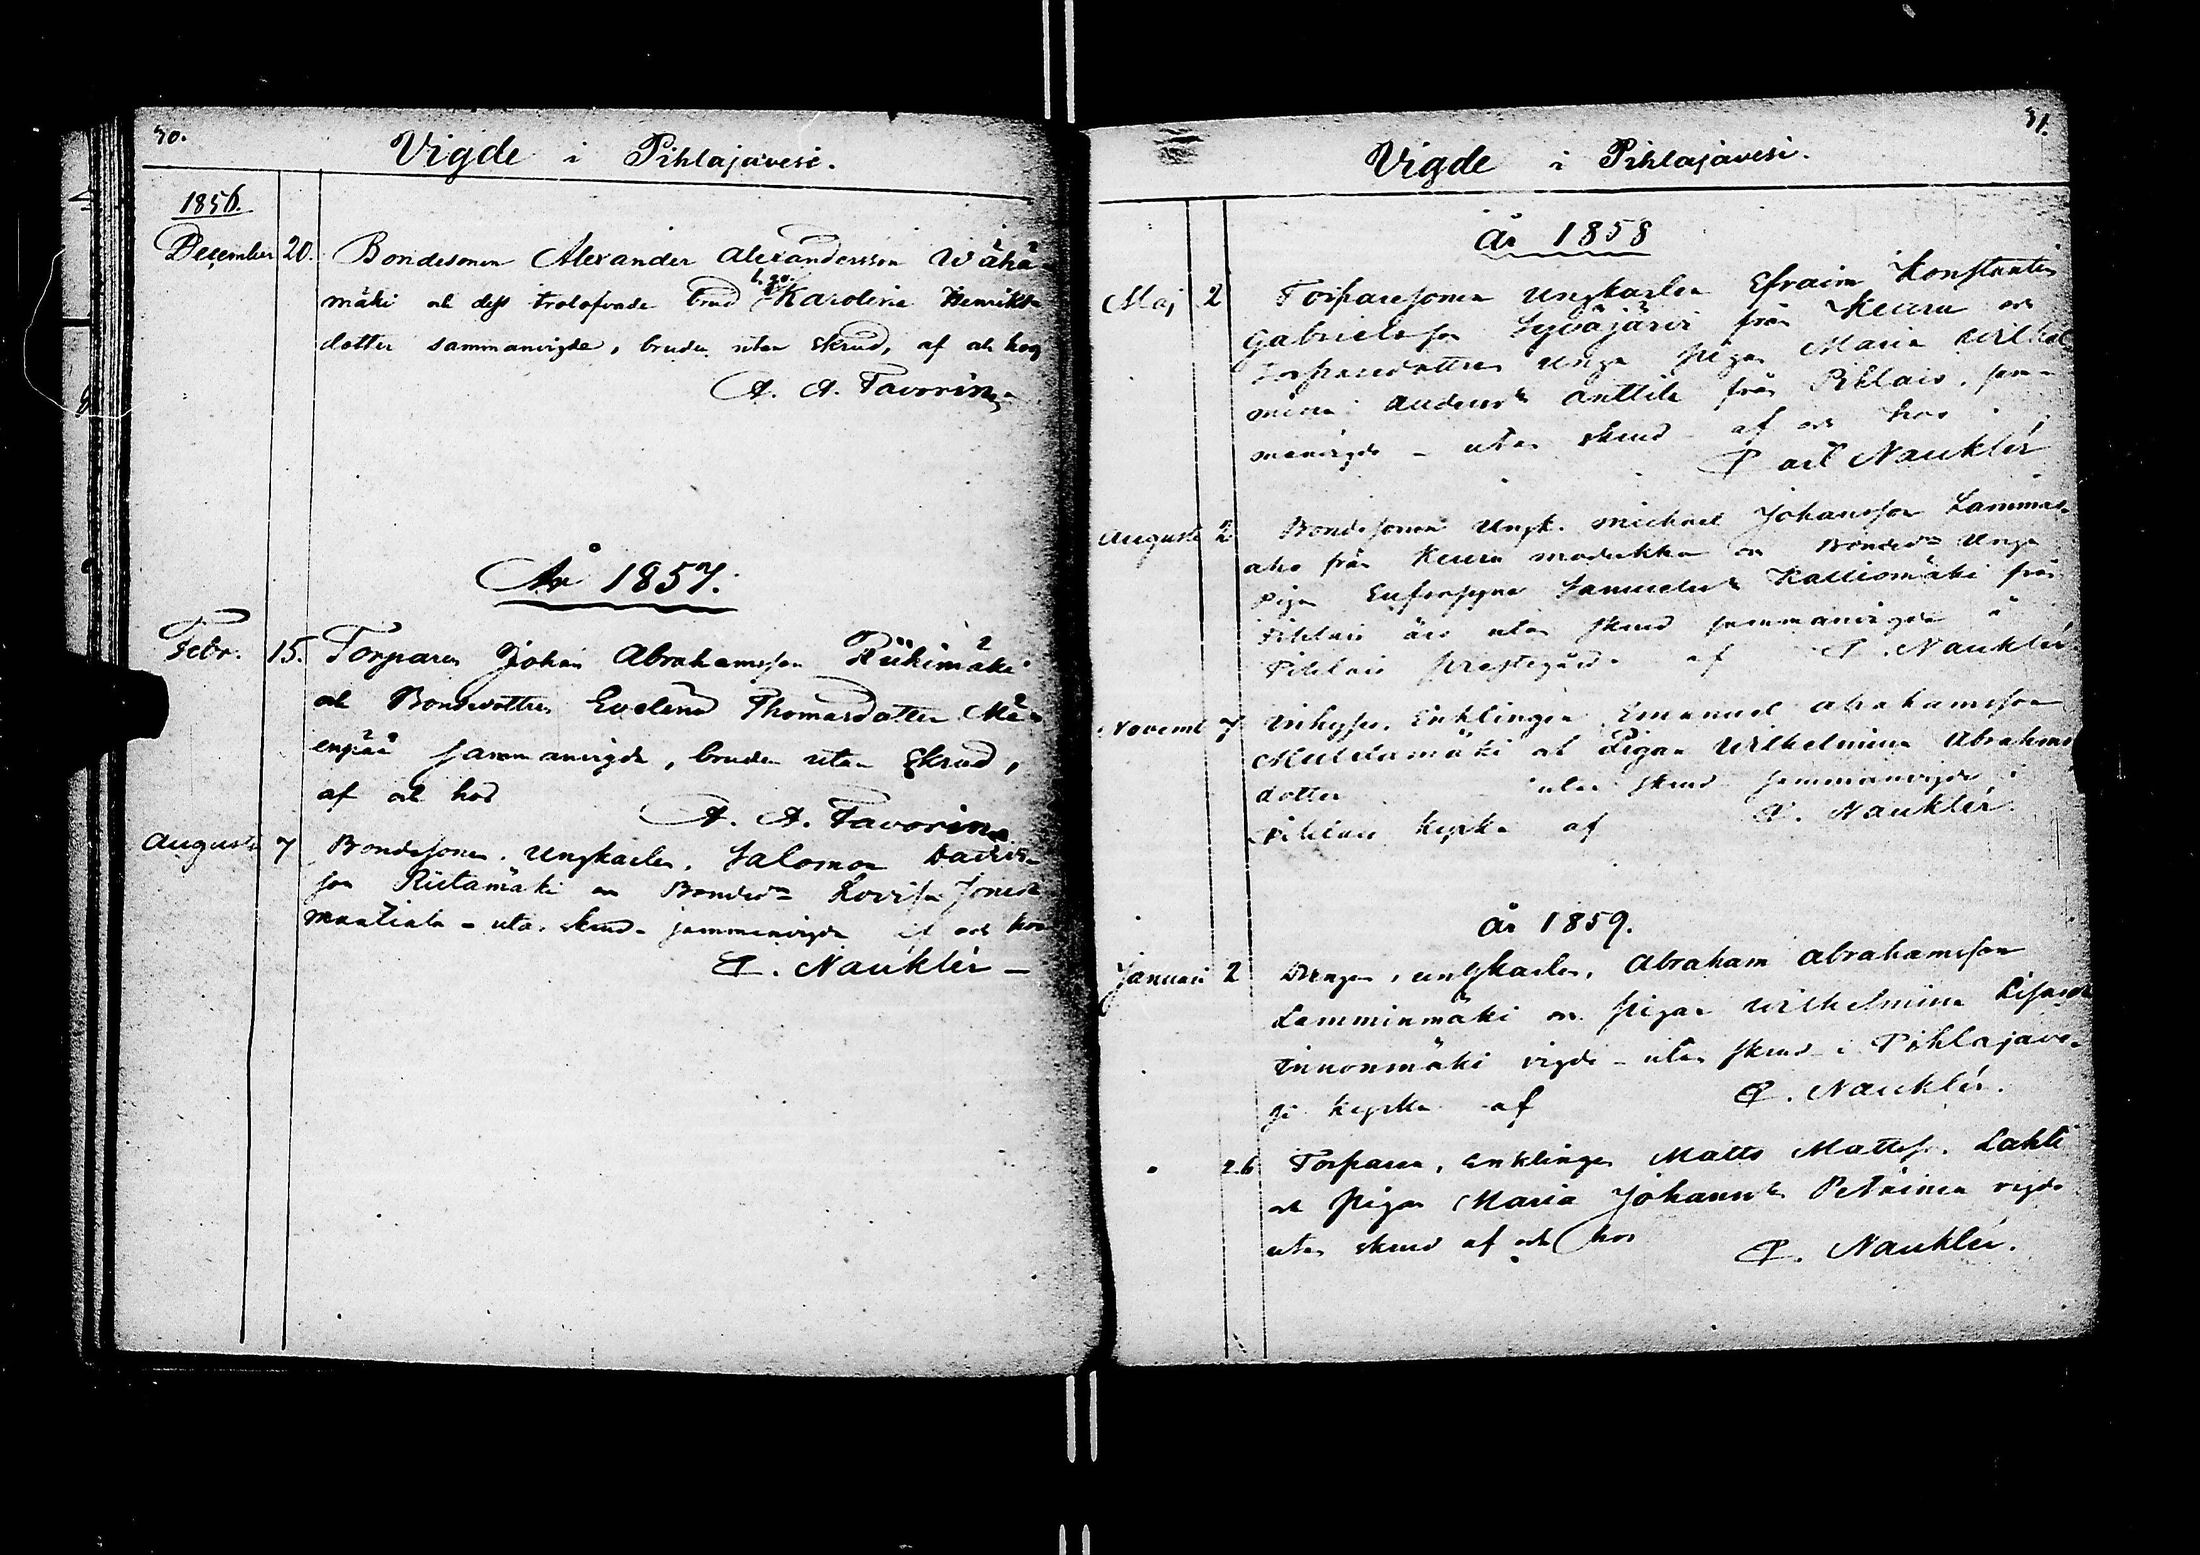 30.
Vigde i Pihlajavesi.
1856.
December 20. Bondesonen Alexander Alexandersson Wähä-
mäki och dess trolofvade brud Karolina Henriks
dotter sammanvigde, bruden utan skrud, af och hos
A. A. Favorin
År 1857.
Febr. 15. Torparen Johan Abrahamsson Riihimäki
och Bondedottren Evelina Thomasdotter Mä-
enpää sammanvigde, bruden utan skrud,
af och hos
A. A. Favorin
Augusti 7 Bondesonen, Ungkarlen, Salomon Davids-
son Riitamäki och Bonded. Lovisa Jonasd.
Manttala - utan skrud - sammanvigde af och hos
C. Nauklér -
31.
Vigde i Pihlajavesi.
År 1858
Maj 2 Torparesonen Ungkarlen Efraim Konstantin
Gabrielsson Syväjärvi från Keuru och
Torparedottren Unga Pigan Maria Wilhel-
mina Andersd. Anttila från Pihlais. sam-
manvigde - utan skrud - af och hos
Carl Nauklér
Augusti 2 Bondesonen Ungk. Michael Johansson Lammas-
aho från Keuru och Bonded. Unga
Pigan Eufrosyne Samuelsd. Kalliomäki från
Pihlais utan skrud sammanvigde i
Pihlais prestegård af C. Nauklér
Novemb 7 Enklingen Emanuel Abrahamsson
mäki och Pigan Wilhelmina Abrahams
dotter utan skrud sammanvigde i
Pihlais kyrka af C. Nauklér.
År 1859.
Januari 2 Drengen, ungkarlen, Abraham Abrahamsson
Lamminmäki och pigan Wilhelmina
Innonmäki vigde - utan skrud i Pihlajave-
si kyrka af C. Nauklér.
" 26 Torparen, enklingen Matts Mattss. Lahti
och pigan Maria Johansd. Petäinen vigde
utan skrud af och hos C. Nauklér.